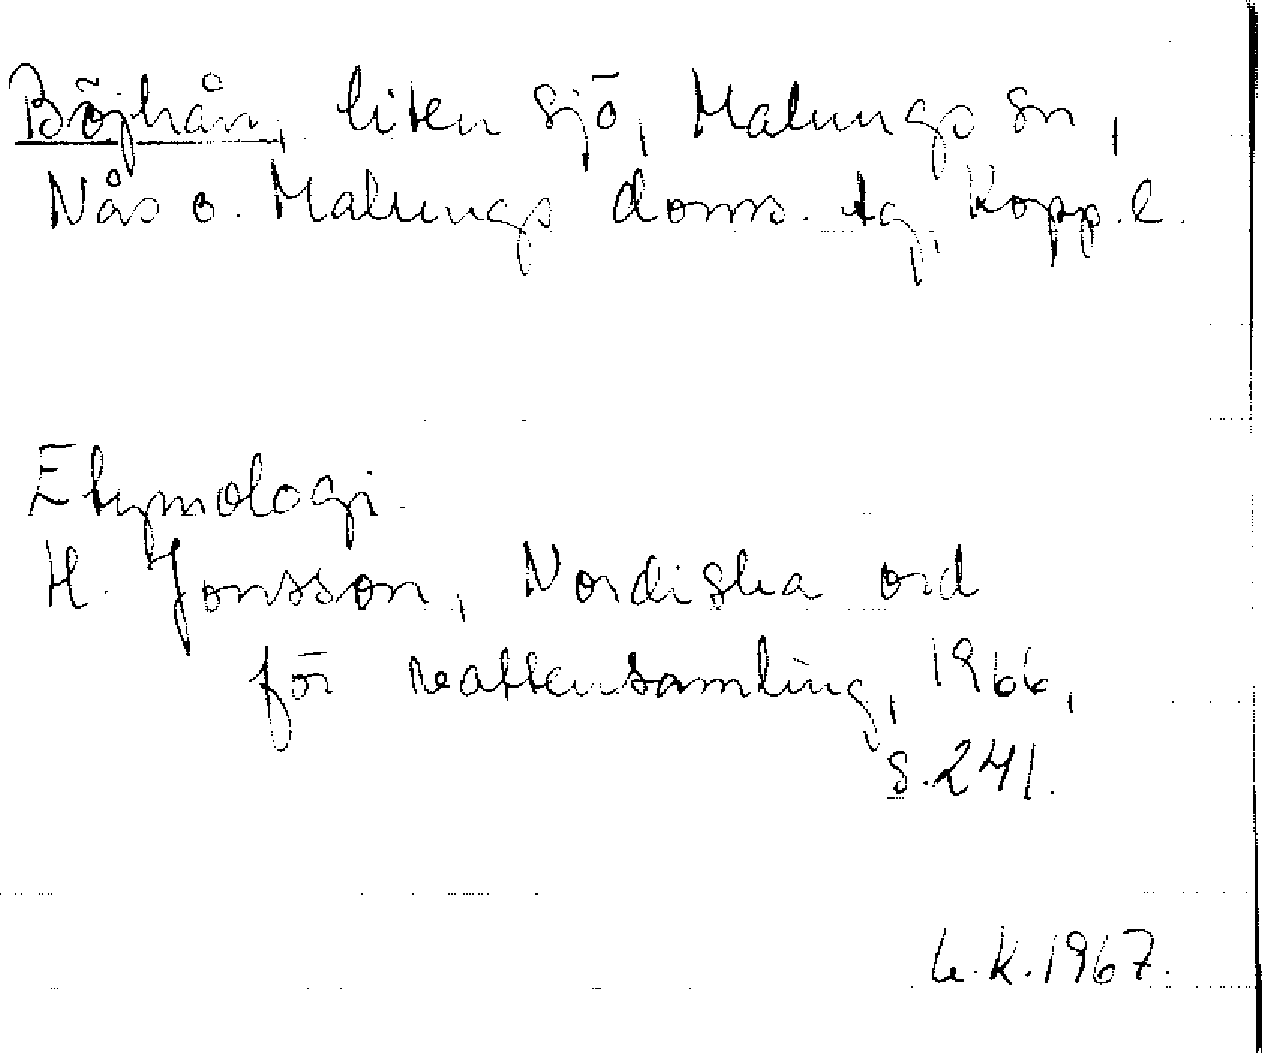 Böjhån, liten sjö, Malungs sn,
Nås o. Malungs doms. tg, Kopp. l.
Etymologi.
H. Jonsson, Nordiska ord
för vattensamling, 1966,
s. 241.
L.K. 1967.